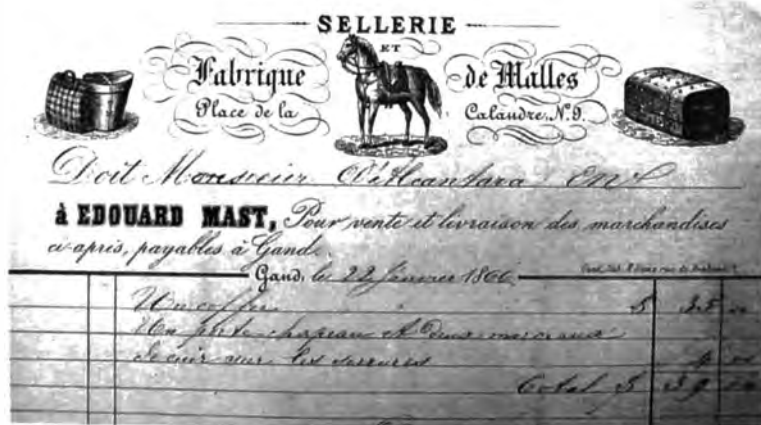 SELLERIE
ET
Fabrique de Malles
Place de la Calandre, N. 9.
Doit Monsieur D'Alcantara
à EDOUARD MAST, Pour vente et livraison des marchandises
ci-après, payables à Gand.
Gand, le 22 février 1866
Un coffre 35
Un porte chapeau et deux morceaux
de cuir sur les serrures 4
Total 39